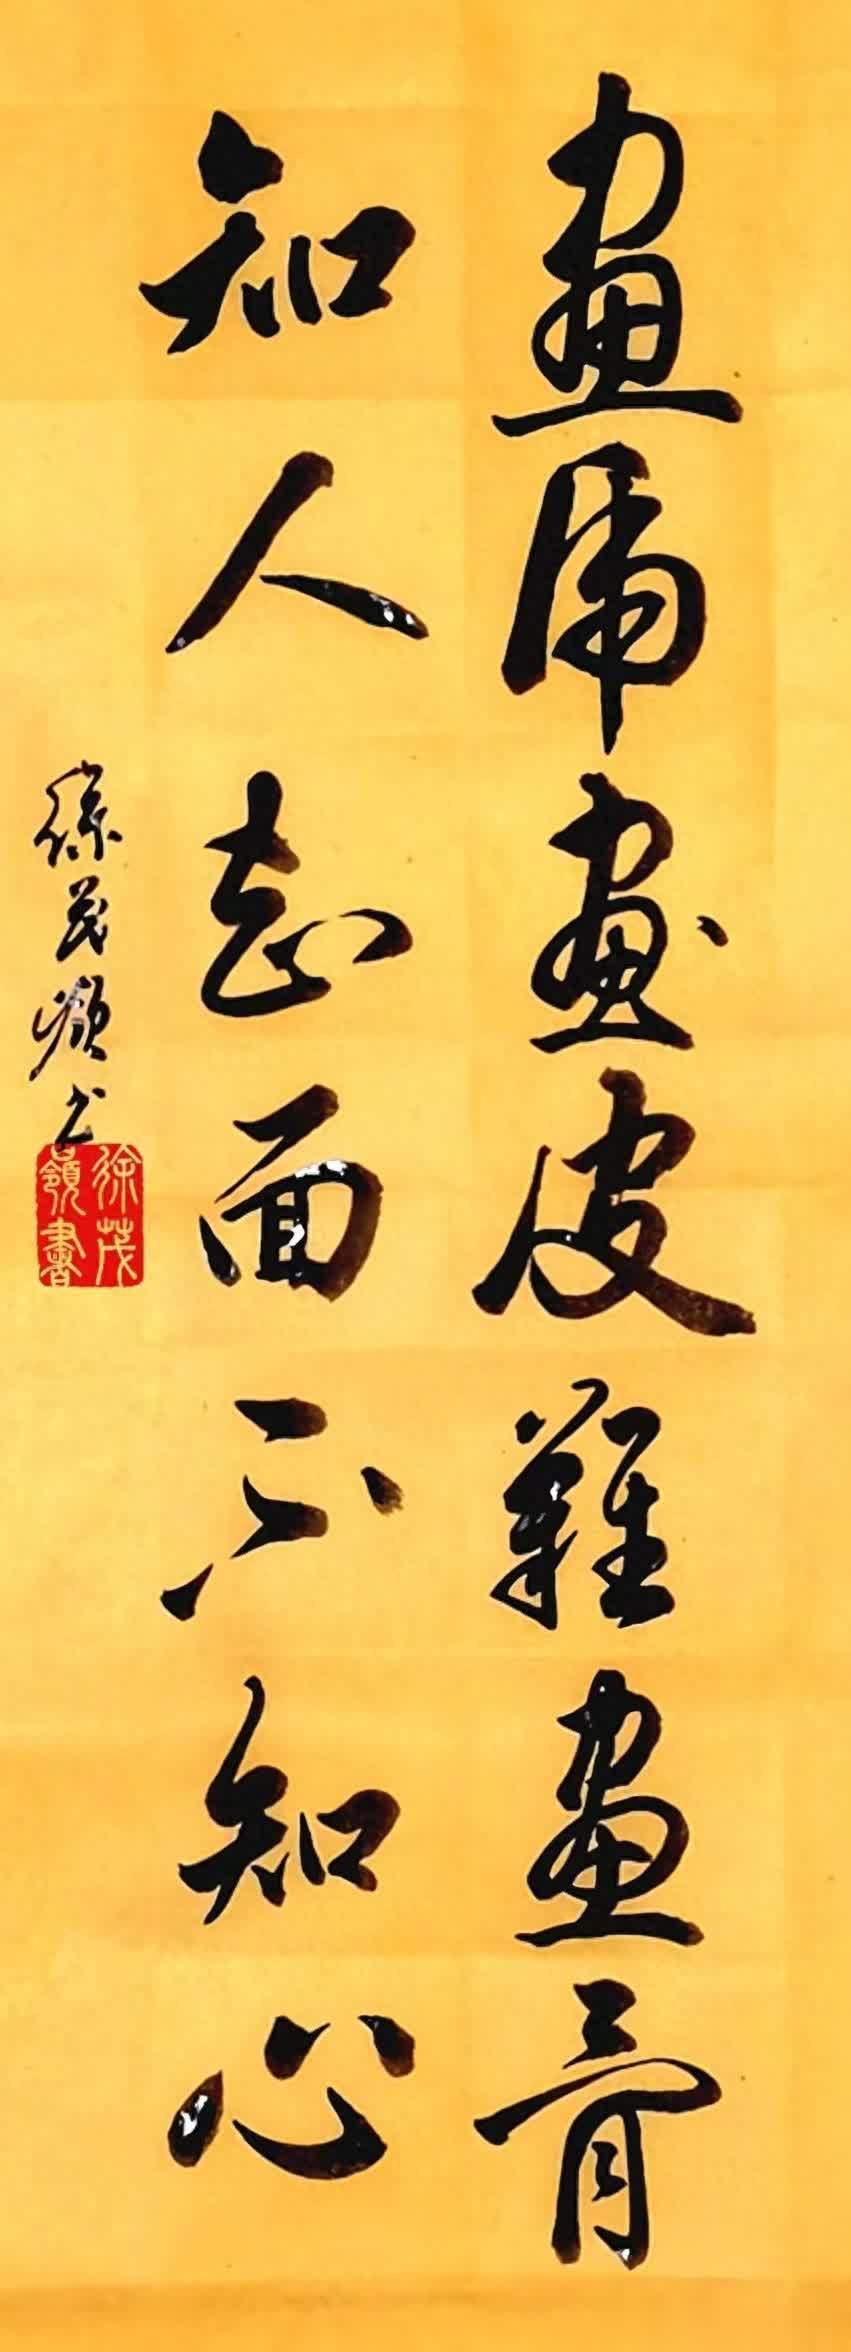 畫虎畫皮難畫骨
知人志面不知心
徐茂嶺书
徐茂
嶺書